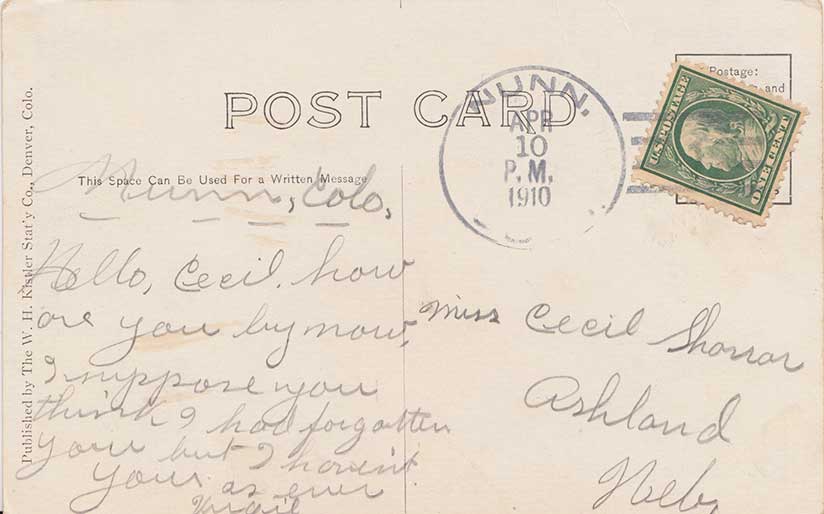 POST CARD
This Space Can Be Used For a Written Message
Nunn, Colo,
Hello, Cecil, how
are you by now,
I suppose you
think I had forgotten
you but I havent
Yours as ever
Virgil
Published by The W. H. Kistler Stat'y Co., Denver, Colo.
NUNN,
APR
10
P. M.
1910
Postage:
and
U.S. POSTAGE
ONE CENT
Miss Cecil
Ashland
Neb,